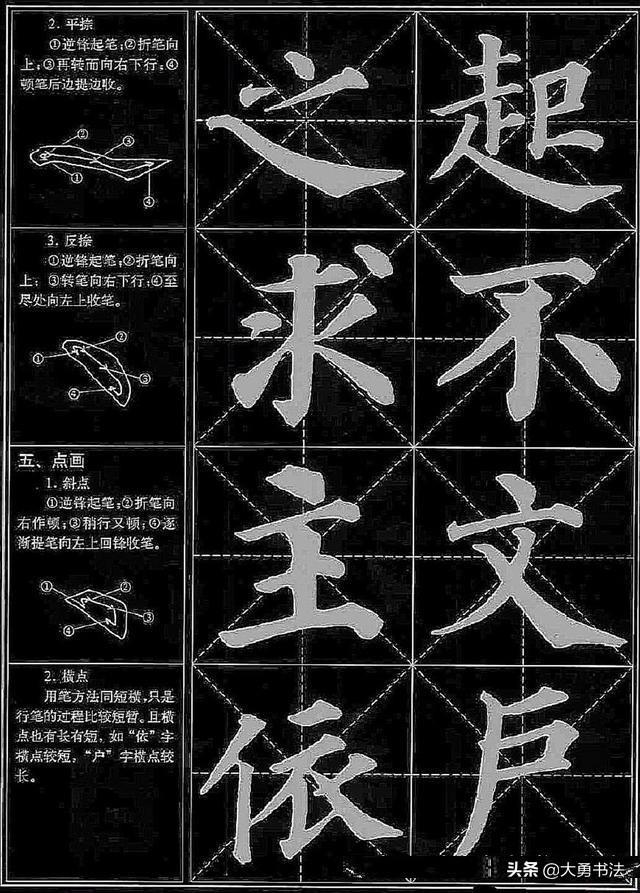 2. 平捺
①逆锋起笔;②折笔向
上;③再转而向右下行;④
顿笔后边提边收。
① ② ③ ④
之 起
3. 反捺
①逆锋起笔;②折笔向
上; ③转笔向右下行;④至
尽处向左上收笔。
① ② ③ ④
求 不
五、点画
1. 斜点
①逆锋起笔;②折笔向
右作顿;③稍行又顿;④逐
渐提笔向左上回锋收笔。
① ② ③ ④
主 文
2. 横点
用笔方法同短横,只是
行笔的过程比较短暂。且横
点也有长有短, 如“依”字
横点较短, “户”字横点较
长。
依 户
头条 @大勇书法